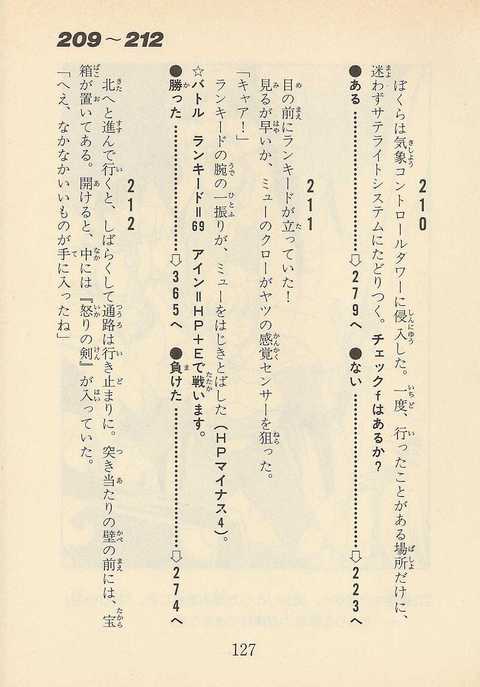 209～212
210
ぼくらは気象コントロールタワーに侵入した。一度、行ったことがある場所だけに、
迷わずサテライトシステムにたどりつく。チェックfはあるか？
●ある……………⇨279へ ●ない……………⇨223へ
211
目の前にランキードが立っていた！
見るが早いか、ミューのクローがヤツの感覚センサーを狙った。
「キャア！」
ランキードの腕の一振りが、ミューをはじきとばした（HPマイナス4）。
☆バトル ランキード＝69 アイン＝HP＋Eで戦います。
●勝った……………⇨365へ ●負けた……………⇨274へ
212
北へと進んで行くと、しばらくして通路は行き止まりに。突き当たりの壁の前には、宝
箱が置いてある。開けると、中には『怒りの剣』が入っていた。
「へえ、なかなかいいものが手に入ったね」
127